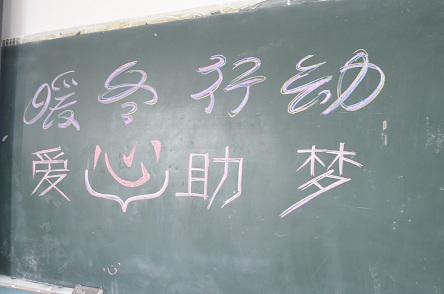 暖冬行动
爱心助梦